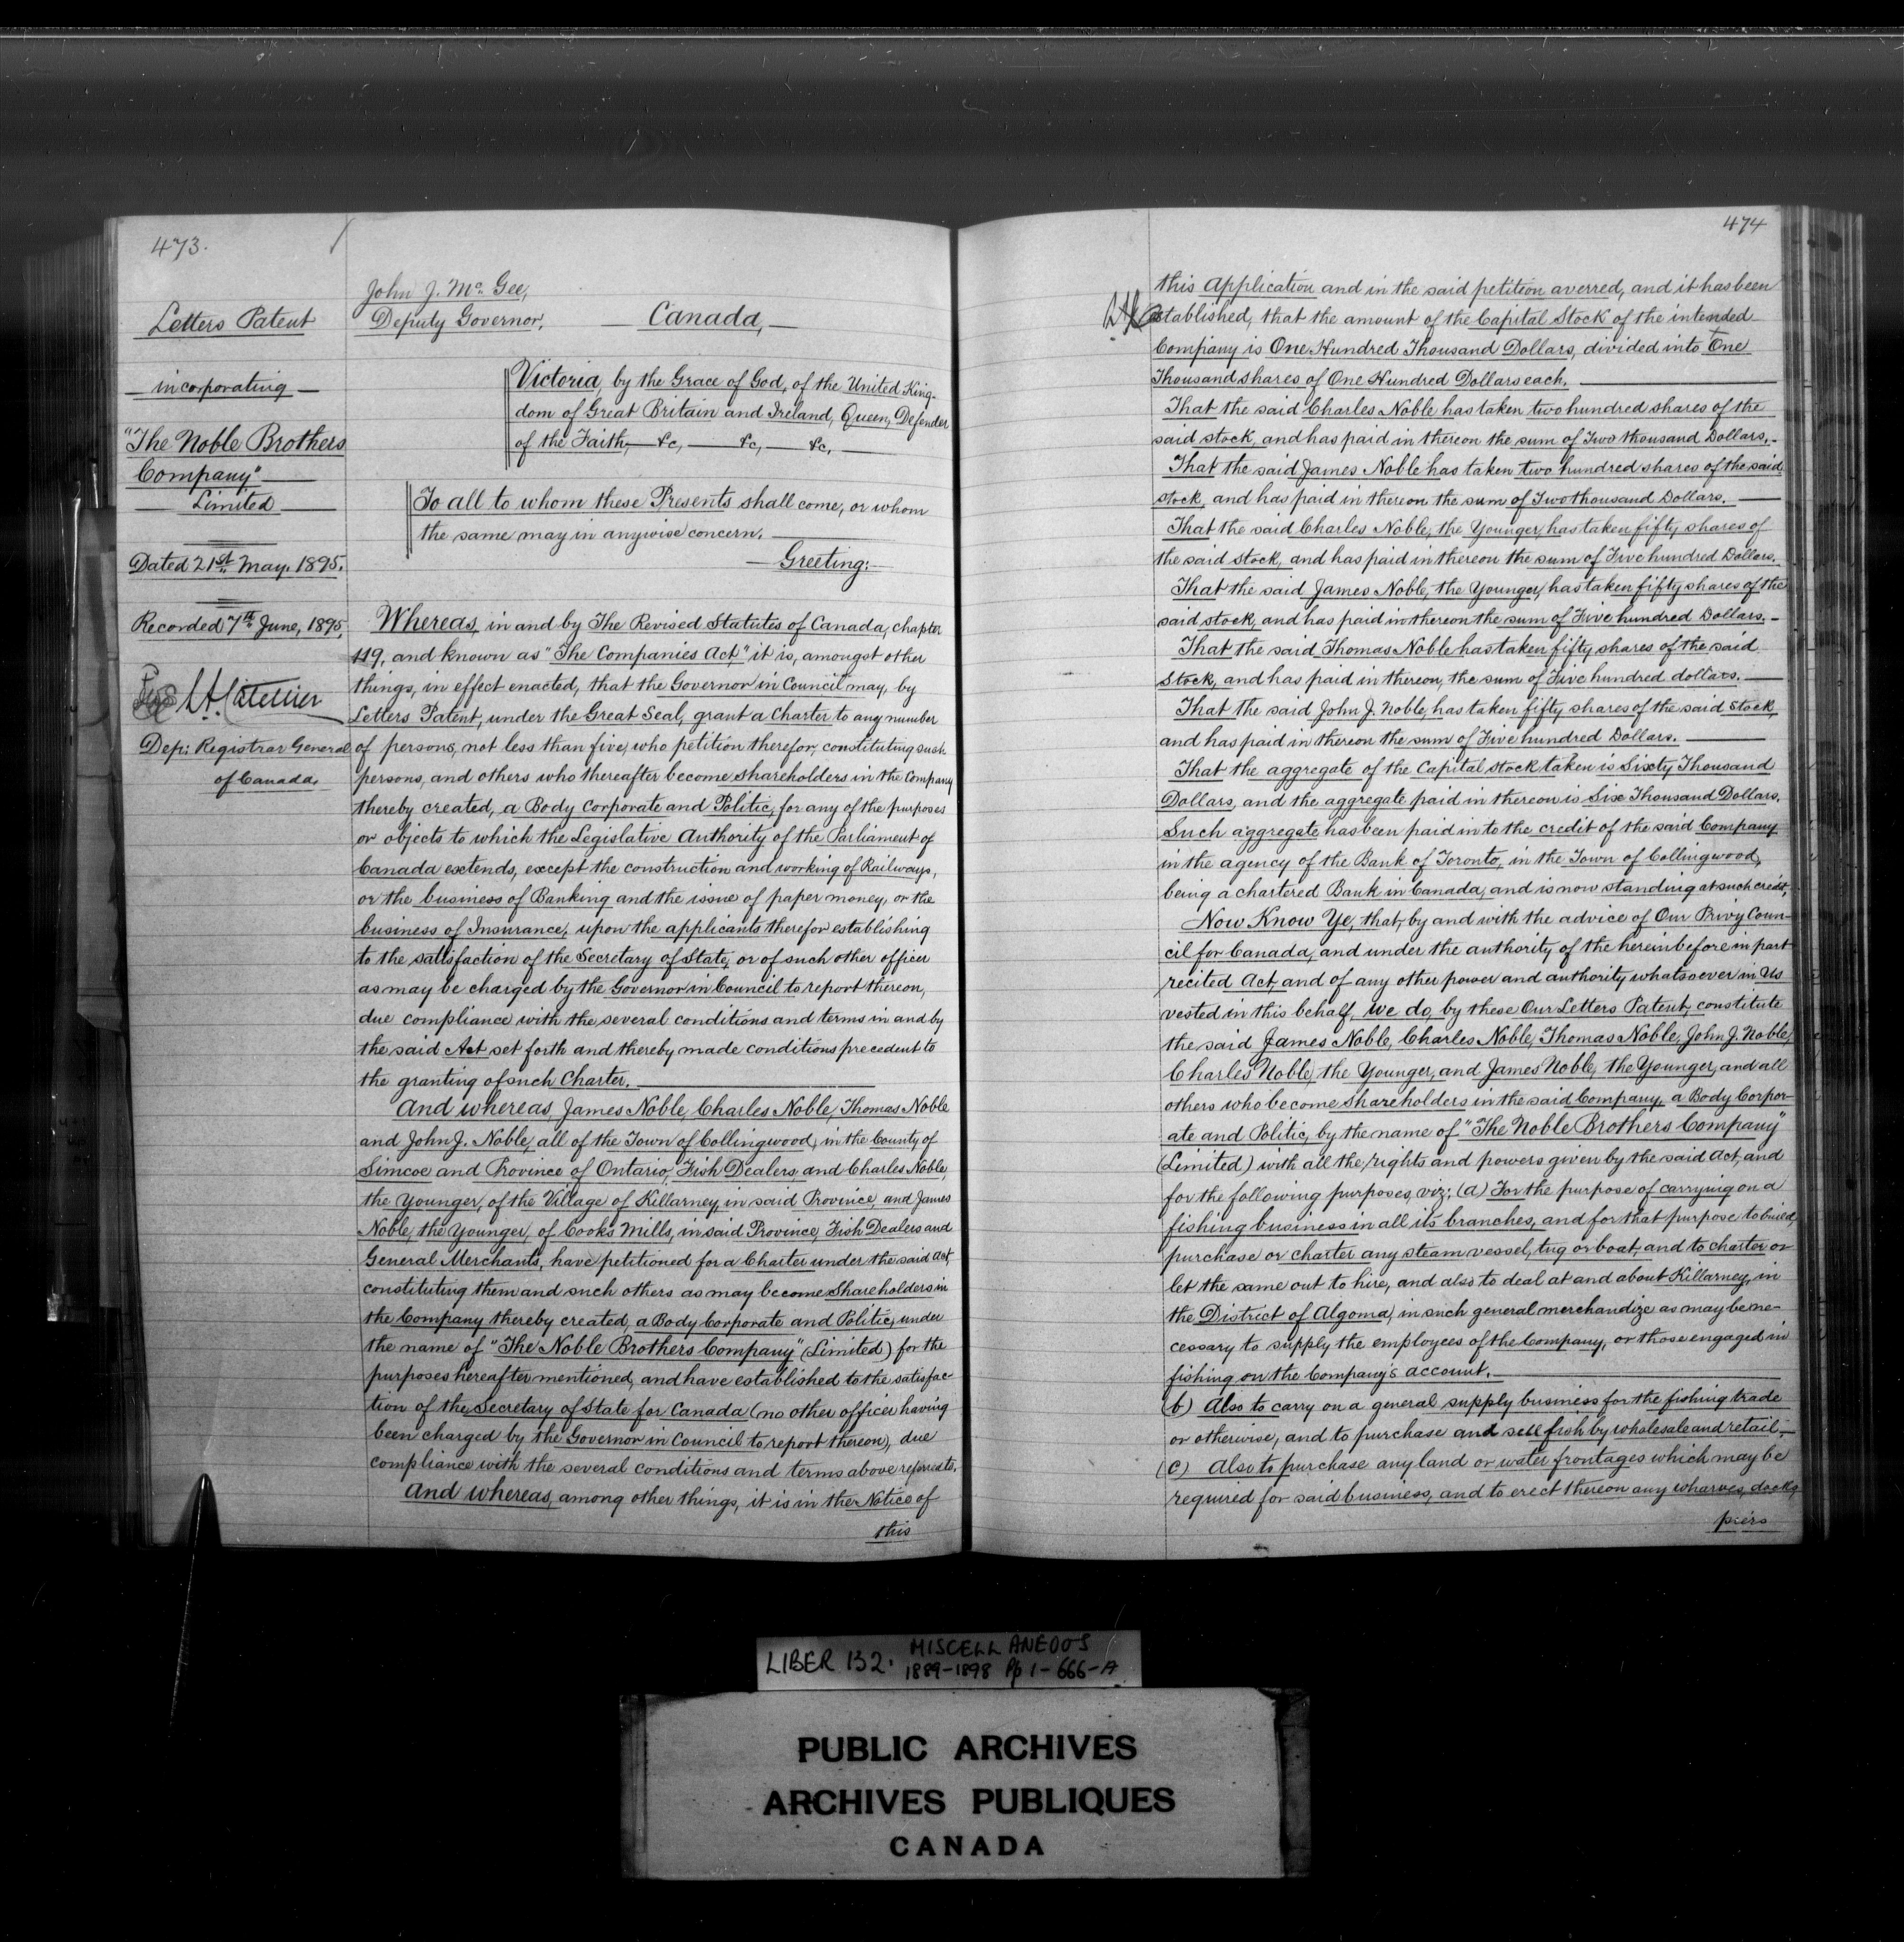 473.
Letters Patent
incorporating
"The Noble Brothers
Company"
Limited
Dated 21st May, 1895.
Recorded 7th June, 1895,
Dep: Registrar General
of Canada.
John J. McGee,
Deputy Governor,
Canada,
Victoria, by the Grace of God, of the United King-
dom of Great Britain and Ireland, Queen, Defender
of the Faith, &c, &c, &c,
To all to whom these Presents shall come, or whom
the same may in anywise concern.
Greeting:
Whereas, in and by The Revised Statutes of Canada, chapter
119, and known as "The Companies Act," it is, amongst other
things, in effect enacted, that the Governor in Council may, by
Letters Patent, under the Great Seal, grant a Charter to any number
of persons, not less than five, who petition therefor, constituting such
persons, and others who thereafter become shareholders in the Company
thereby created, a Body Corporate and Politic, for any of the purposes
or objects to which the Legislative Authority of the Parliament of
Canada extends, except the construction and working of Railways,
or the business of Banking and the issue of paper money, or the
business of Insurance, upon the applicants therefor establishing
to the satisfaction of the Secretary of State, or of such other officer
as may be charged by the Governor in Council to report thereon,
due compliance with the several conditions and terms in and by
the said Act set forth and thereby made conditions precedent to
the granting of such Charter.
And whereas, James Noble, Charles Noble, Thomas Noble
and John J. Noble, all of the Town of Collingwood, in the County of
Simcoe and Province of Ontario, Fish Dealers, and Charles Noble,
the Younger, of the Village of Killarney, in said Province, and James
Noble, the Younger, of Cooks Mills, in said Province, Fish Dealers and
General Merchants, have petitioned for a Charter under the said Act,
constituting them and such others as may become Shareholders in
the Company thereby created, a Body Corporate and Politic, under
the name of "The Noble Brothers Company" (Limited) for the
purposes hereafter mentioned, and have established to the satisfac-
tion of the Secretary of State for Canada (no other officer having
been charged by the Governor in Council to report thereon), due
compliance with the several conditions and terms above referred to.
And whereas, among other things, it is in the Notice of
this
474
this Application and in the said petition averred, and it has been
established, that the amount of the Capital Stock of the intended
Company is One Hundred Thousand Dollars, divided into One
Thousand shares of One Hundred Dollars each.
That the said Charles Noble has taken two hundred shares of the
said stock, and has paid in thereon the sum of Two thousand Dollars.
That the said James Noble has taken two hundred shares of the said
stock, and has paid in thereon the sum of Two thousand Dollars.
That the said Charles Noble, the Younger, has taken fifty shares of
the said stock, and has paid in thereon the sum of Five hundred Dollars.
That the said James Noble, the Younger, has taken fifty shares of the
said stock, and has paid in thereon the sum of Five hundred Dollars.
That the said Thomas Noble has taken fifty shares of the said
Stock, and has paid in thereon, the sum of Five hundred dollars.
That the said John J. Noble, has taken fifty shares of the said stock,
and has paid in thereon the sum of Five hundred Dollars.
That the aggregate of the Capital stock taken is Sixty Thousand
Dollars, and the aggregate paid in thereon is Six Thousand Dollars.
Such aggregate has been paid in to the credit of the said Company
in the agency of the Bank of Toronto, in the Town of Collingwood,
being a chartered Bank in Canada, and is now standing at such credit.
Now Know Ye, that, by and with the advice of Our Privy Coun-
cil for Canada, and under the authority of the hereinbefore in part
recited Act, and of any other power and authority whatsoever in Us
vested in this behalf, We do, by these Our Letters Patent, constitute
the said James Noble, Charles Noble, Thomas Noble, John J. Noble,
Charles Noble, the Younger, and James Noble, the Younger, and all
others who become shareholders in the said Company, a Body Corpor-
ate and Politic, by the name of "The Noble Brothers Company"
(Limited) with all the rights and powers given by the said Act, and
for the following purposes, viz: (a) For the purpose of carrying on a
fishing business in all its branches, and for that purpose to build,
purchase or charter any steam vessel, tug or boat, and to charter or
let the same out to hire, and also to deal at and about Killarney, in
the District of Algoma, in such general merchandize as may be ne-
cessary to supply the employees of the Company, or those engaged in
fishing on the Company's account.
(b) Also to carry on a general supply business for the fishing trade
or otherwise, and to purchase and sell fish by wholesale and retail,
(c) Also to purchase any land or water frontages which may be
required for said business, and to erect thereon any wharves, docks,
piers
LIBER 132. MISCELLANEOUS
1889-1898 Pp 1-666-A
PUBLIC ARCHIVES
ARCHIVES PUBLIQUES
CANADA